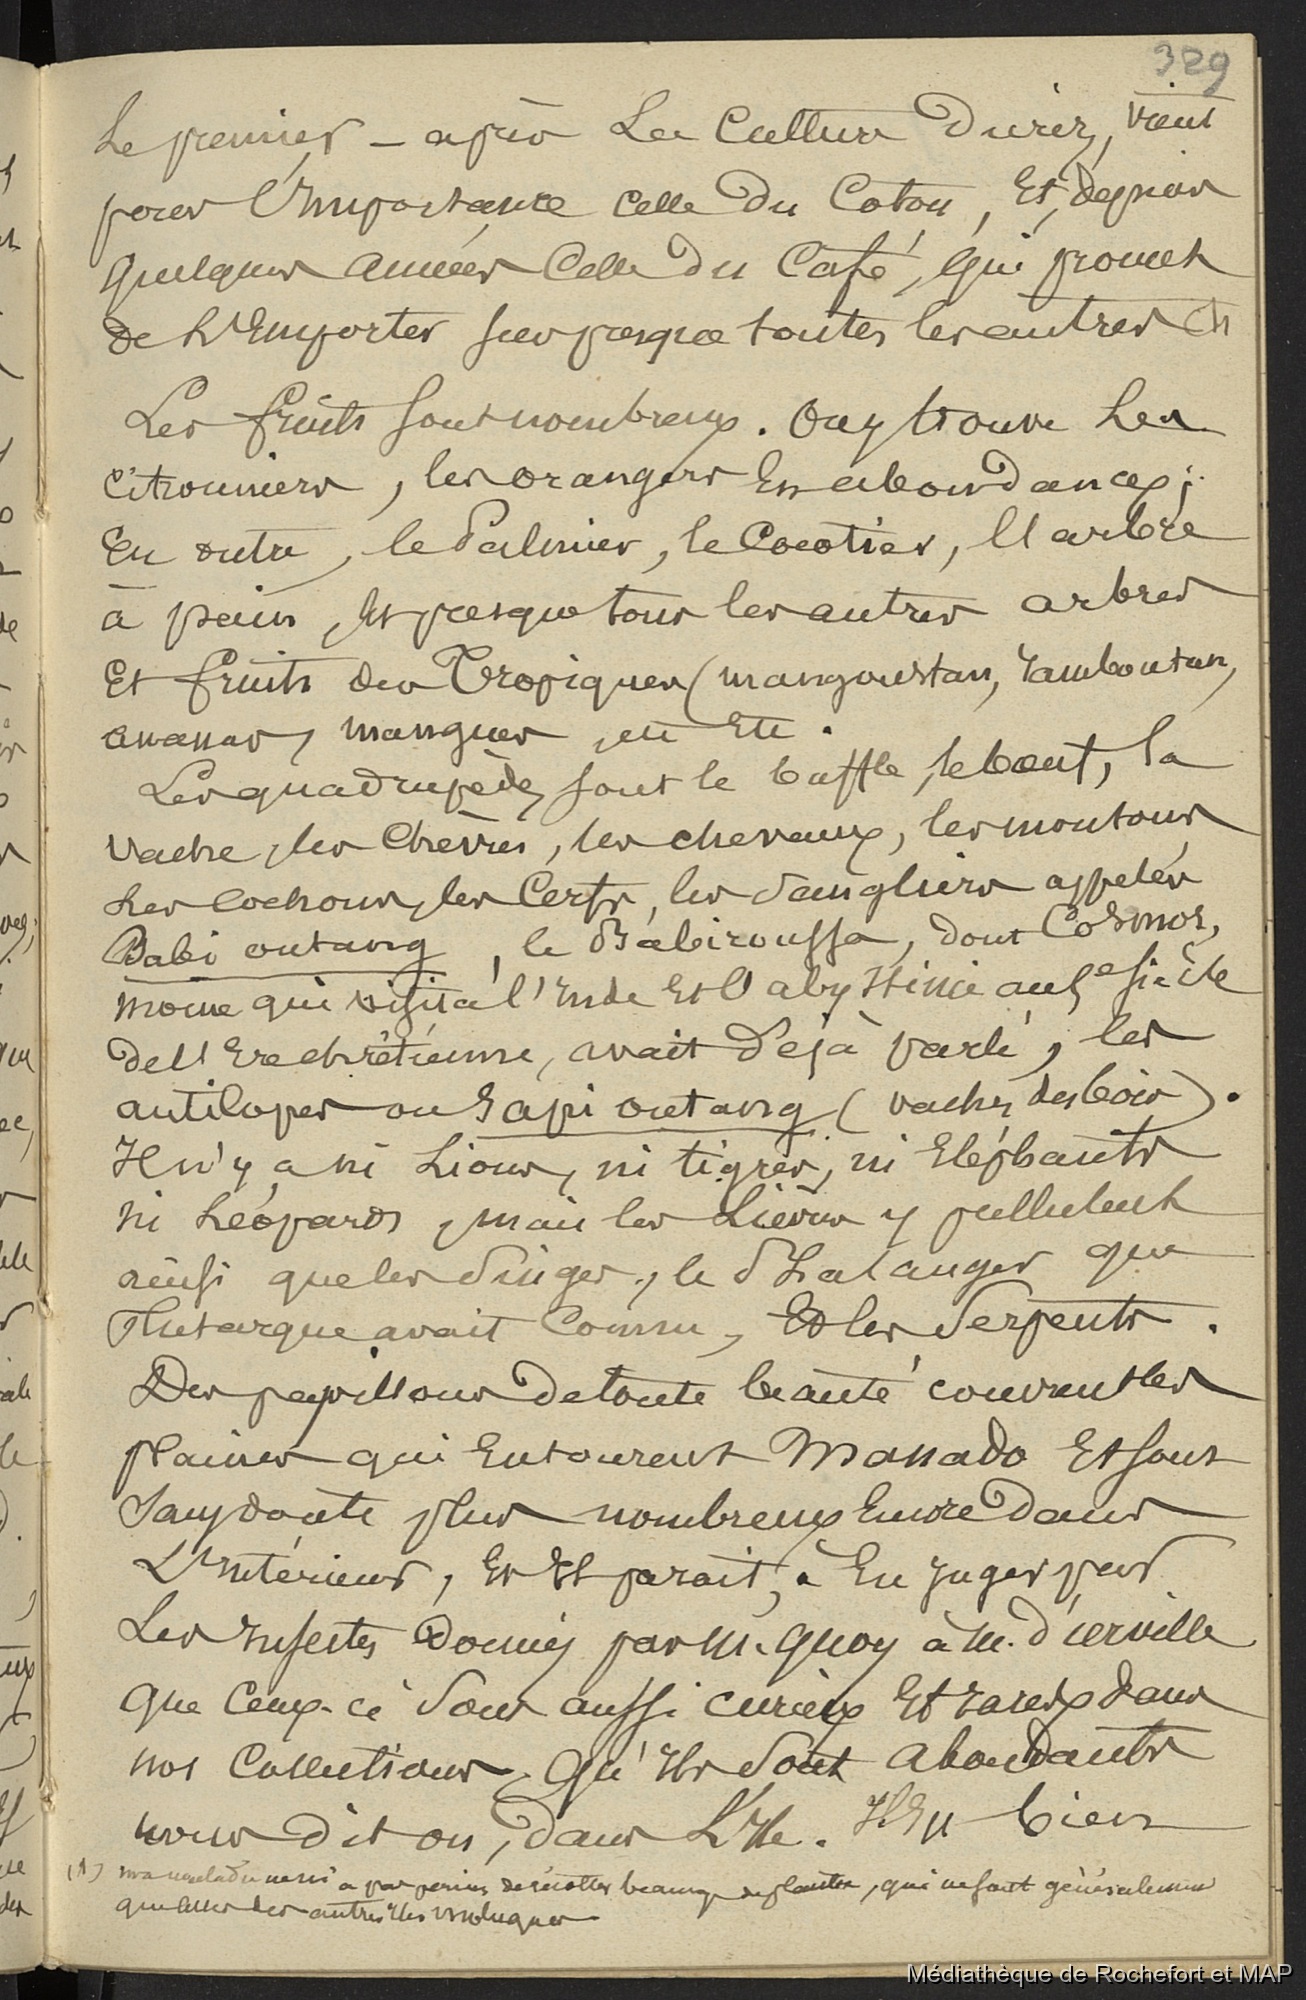 329
Le premier – après La Culture du riz, vient
pour l'Importance celle du Coton, Et, depuis
quelques années Celle du Café, qui promet
de L'Emporter sur presque toutes les autres (1)
Les fruits sont nombreux. On y trouve Les
citronniers, les orangers En abondances;
En outre, le Palmier, le Cocotier, L'arbre
à pain, Et presque tous les autres arbres
Et fruits des Tropiques (mangoustan, ramboutan,
ananas, mangues, etc Etc.
Les quadrupèdes sont le buffle, le bœuf, la
vache, les Chèvres, les chevaux, les moutons
Les cochons, les Cerfs, les sangliers appelés
Babi outang, le Babiroussa, dont Cosmos,
moine qui visita l'Inde Et l'abyssinie au 5e siècle
de L'Ere chrétienne, avait déjà parlé, les
antilopes ou Sapi outang (vaches des bois).
Il n'y a ni Lions, ni tigres, ni Eléphants
ni Léopards, mais les Lièvres y pullulent
ainsi que les Singes, le Phalanger que
Plutarque avait Connu, Et les Serpents.
Des papillons de toute beauté couvrent les
plaines qui Entourent Manado Et sont
sans doute plus nombreux Encore dans
L'Intérieur, Et Il parait, à En juger par
Les Insectes donnés par M. Quoy à M. d'urville
que Ceux-ci Sont aussi curieux Et rares dans
nos Collections, qu'Ils Sont abondants
nous dit on, dans L'Ile. Il En bien
(1) a pas permis de récolter beaucoup de plantes, qui ne sont généralement
que celles des autres Iles Moluques